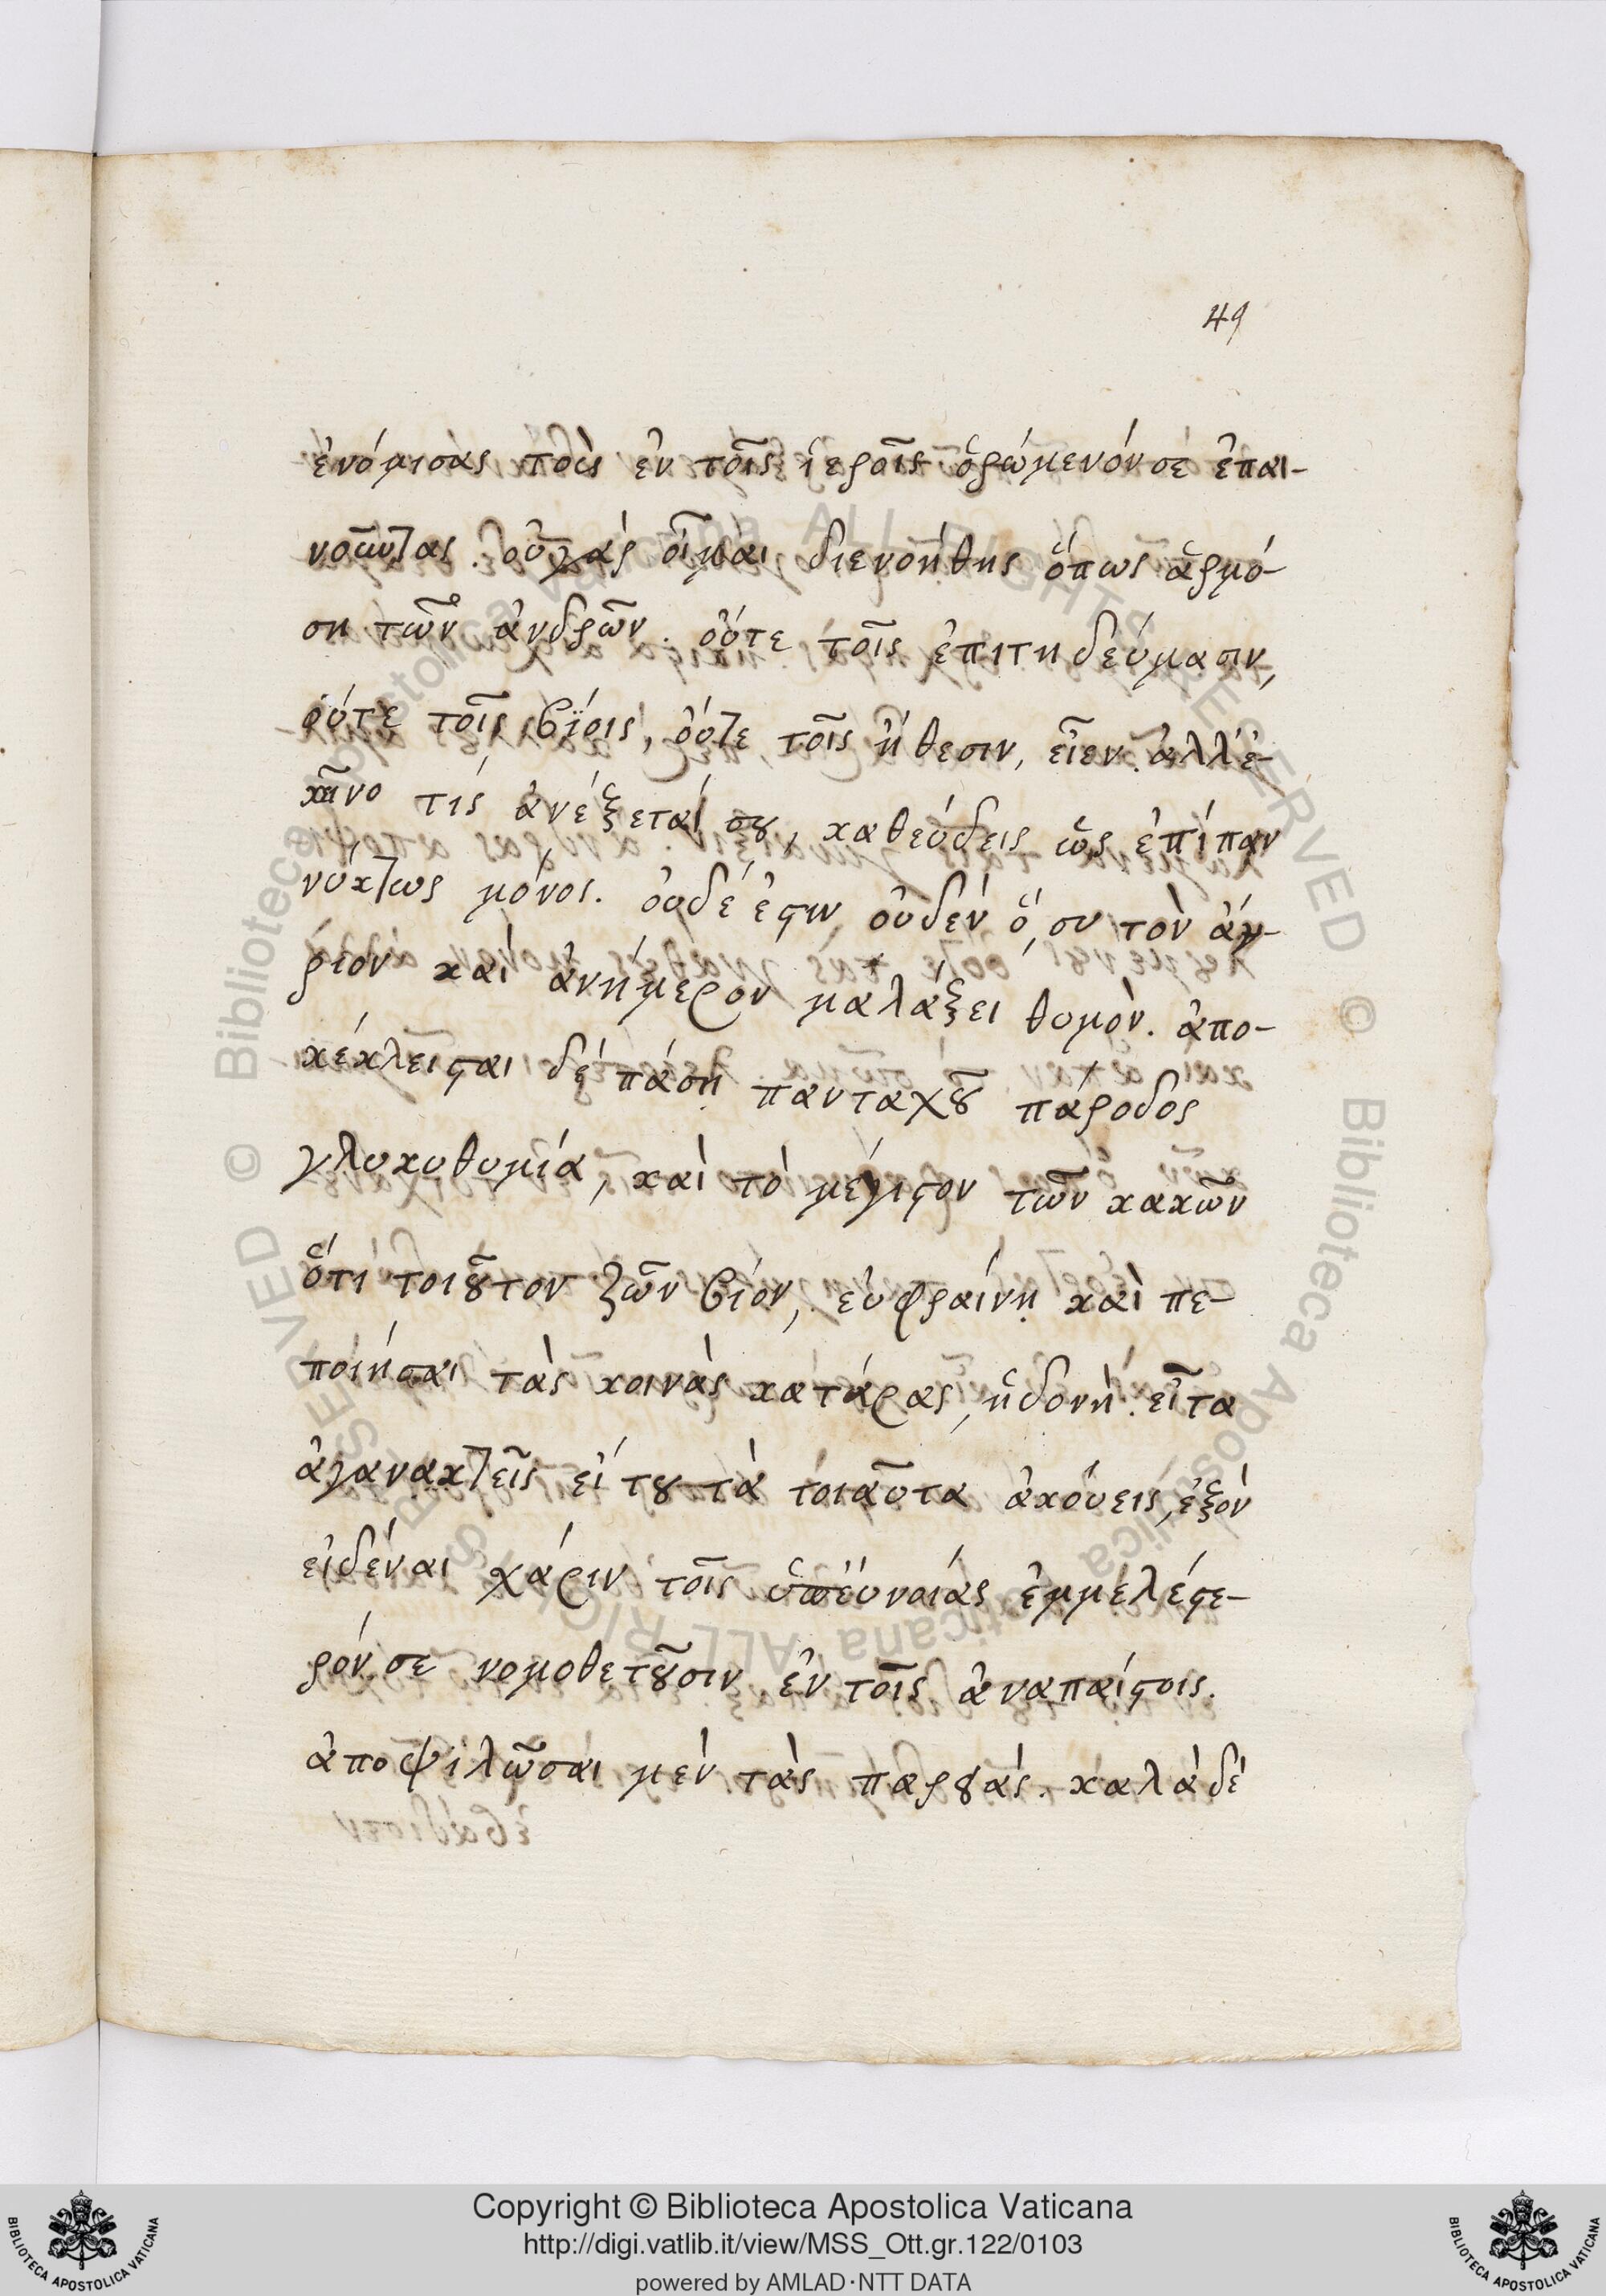 49
ἐνόμισας τοὺς ἐν τοῖς ἱεροῖς ὁρώμενόν σε ἐπαι-
νοῦντας. οὐ γὰρ οἶμαι διενοήθης ὅπως ἁρμό-
ση τῶν ἀνδρῶν. οὔτε τοῖς ἐπιτηδεύμασιν,
οὔτε τοῖς βίοις, οὔτε τοῖς ἤθεσιν, εἶεν. ἀλλ' ἐ-
κεῖνο τίς ἀνέξεταί σου, καθεύδεις ὡς ἐπίπαν
νύκτωρ μόνος. οὐδέ ἐστιν οὐδέν ὅ, σου τὸν ἄγ-
ριον καὶ ἀνήμερον μαλάξει θυμόν. ἀπο-
κέκλεισται δέ πάση πανταχοῦ πάροδος
γλυκυθυμία, καὶ τὸ μέγιστον τῶν κακῶν
ὅτι τοιοῦτον ζῶν βίον, εὐφραίνη καὶ πε-
ποίησαι τὰς κοινὰς κατάρας, ἡδονὴ. εἶτα
ἀγανακτεῖς εἴ του τὰ τοιαῦτα ἀκούεις, ἐξὸν
εἰδέναι χάριν τοῖς ὑπ' εὐνοίας ἐμμελέστε-
ρόν σε νουθετοῦσιν ἐν τοῖς ἀναπαίστοις.
ἀποψιλῶσαι μέν τὰς παρειάς. καλὰ δέ
Copyright © Biblioteca Apostolica Vaticana
http://digi.vatlib.it/view/MSS_Ott.gr.122/0103
powered by AMLAD·NTT DATA
BIBLIOTECA APOSTOLICA VATICANA
BIBLIOTECA APOSTOLICA VATICANA